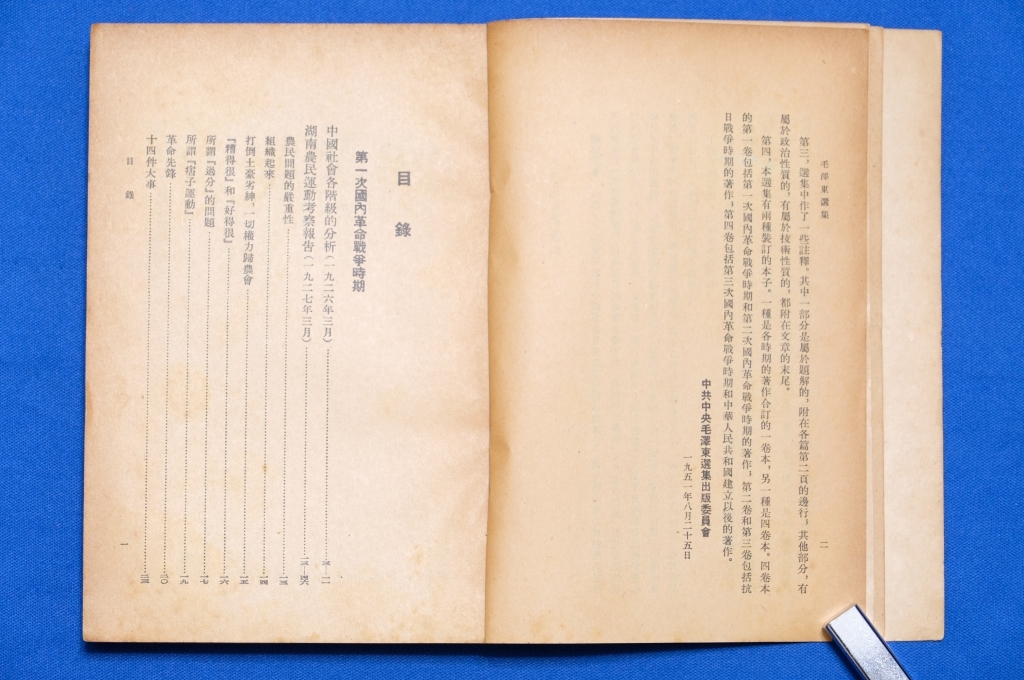 毛澤東選集
第三，選集中作了一些註釋。其中一部分是屬於題解的，附在各篇第一頁的邊行，其他部分，有
屬於政治性質的，有屬於技術性質的，都附在文章的末尾。
第四，本選集有兩種裝訂的本子。一種是各時期的著作合訂的一卷本，另一種是四卷本。四卷本
的第一卷包括第一次國內革命戰爭時期和第二次國內革命戰爭時期的著作，第二卷和第三卷包括抗
日戰爭時期的著作，第四卷包括第三次國內革命戰爭時期和中華人民共和國建立以後的著作。
中共中央毛澤東選集出版委員會
一九五一年八月二十五日
二
目錄
第一次國內革命戰爭時期
中國社會各階級的分析（一九二六年三月）……三—一一
湖南農民運動考察報告（一九二七年三月）……一三—四六
農民問題的嚴重性……一三
組織起來……一四
打倒土豪劣紳，一切權力歸農會……一五
『糟得很』和『好得很』……一六
所謂『過分』的問題……一七
所謂『痞子運動』……一九
革命先鋒……二〇
十四件大事……二三
目錄
一